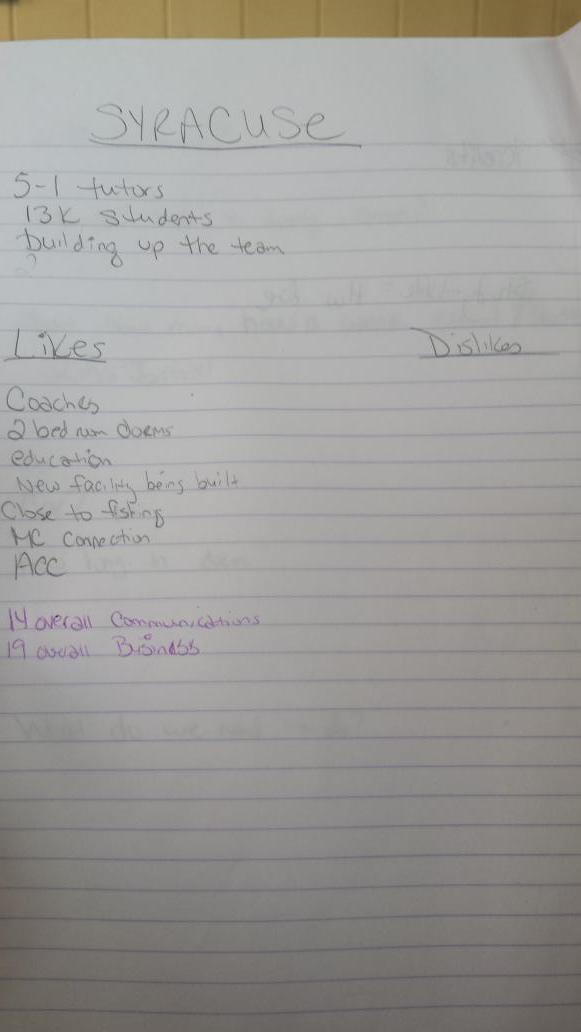 SYRACUSE
5-1 tutors
13K students
building up the team
?
Likes
Dislikes
Coaches
2 bed room dorms
education
New facility being built
Close to fishing
MC Connection
ACC
14 overall Communications
19 overall Business
What do we